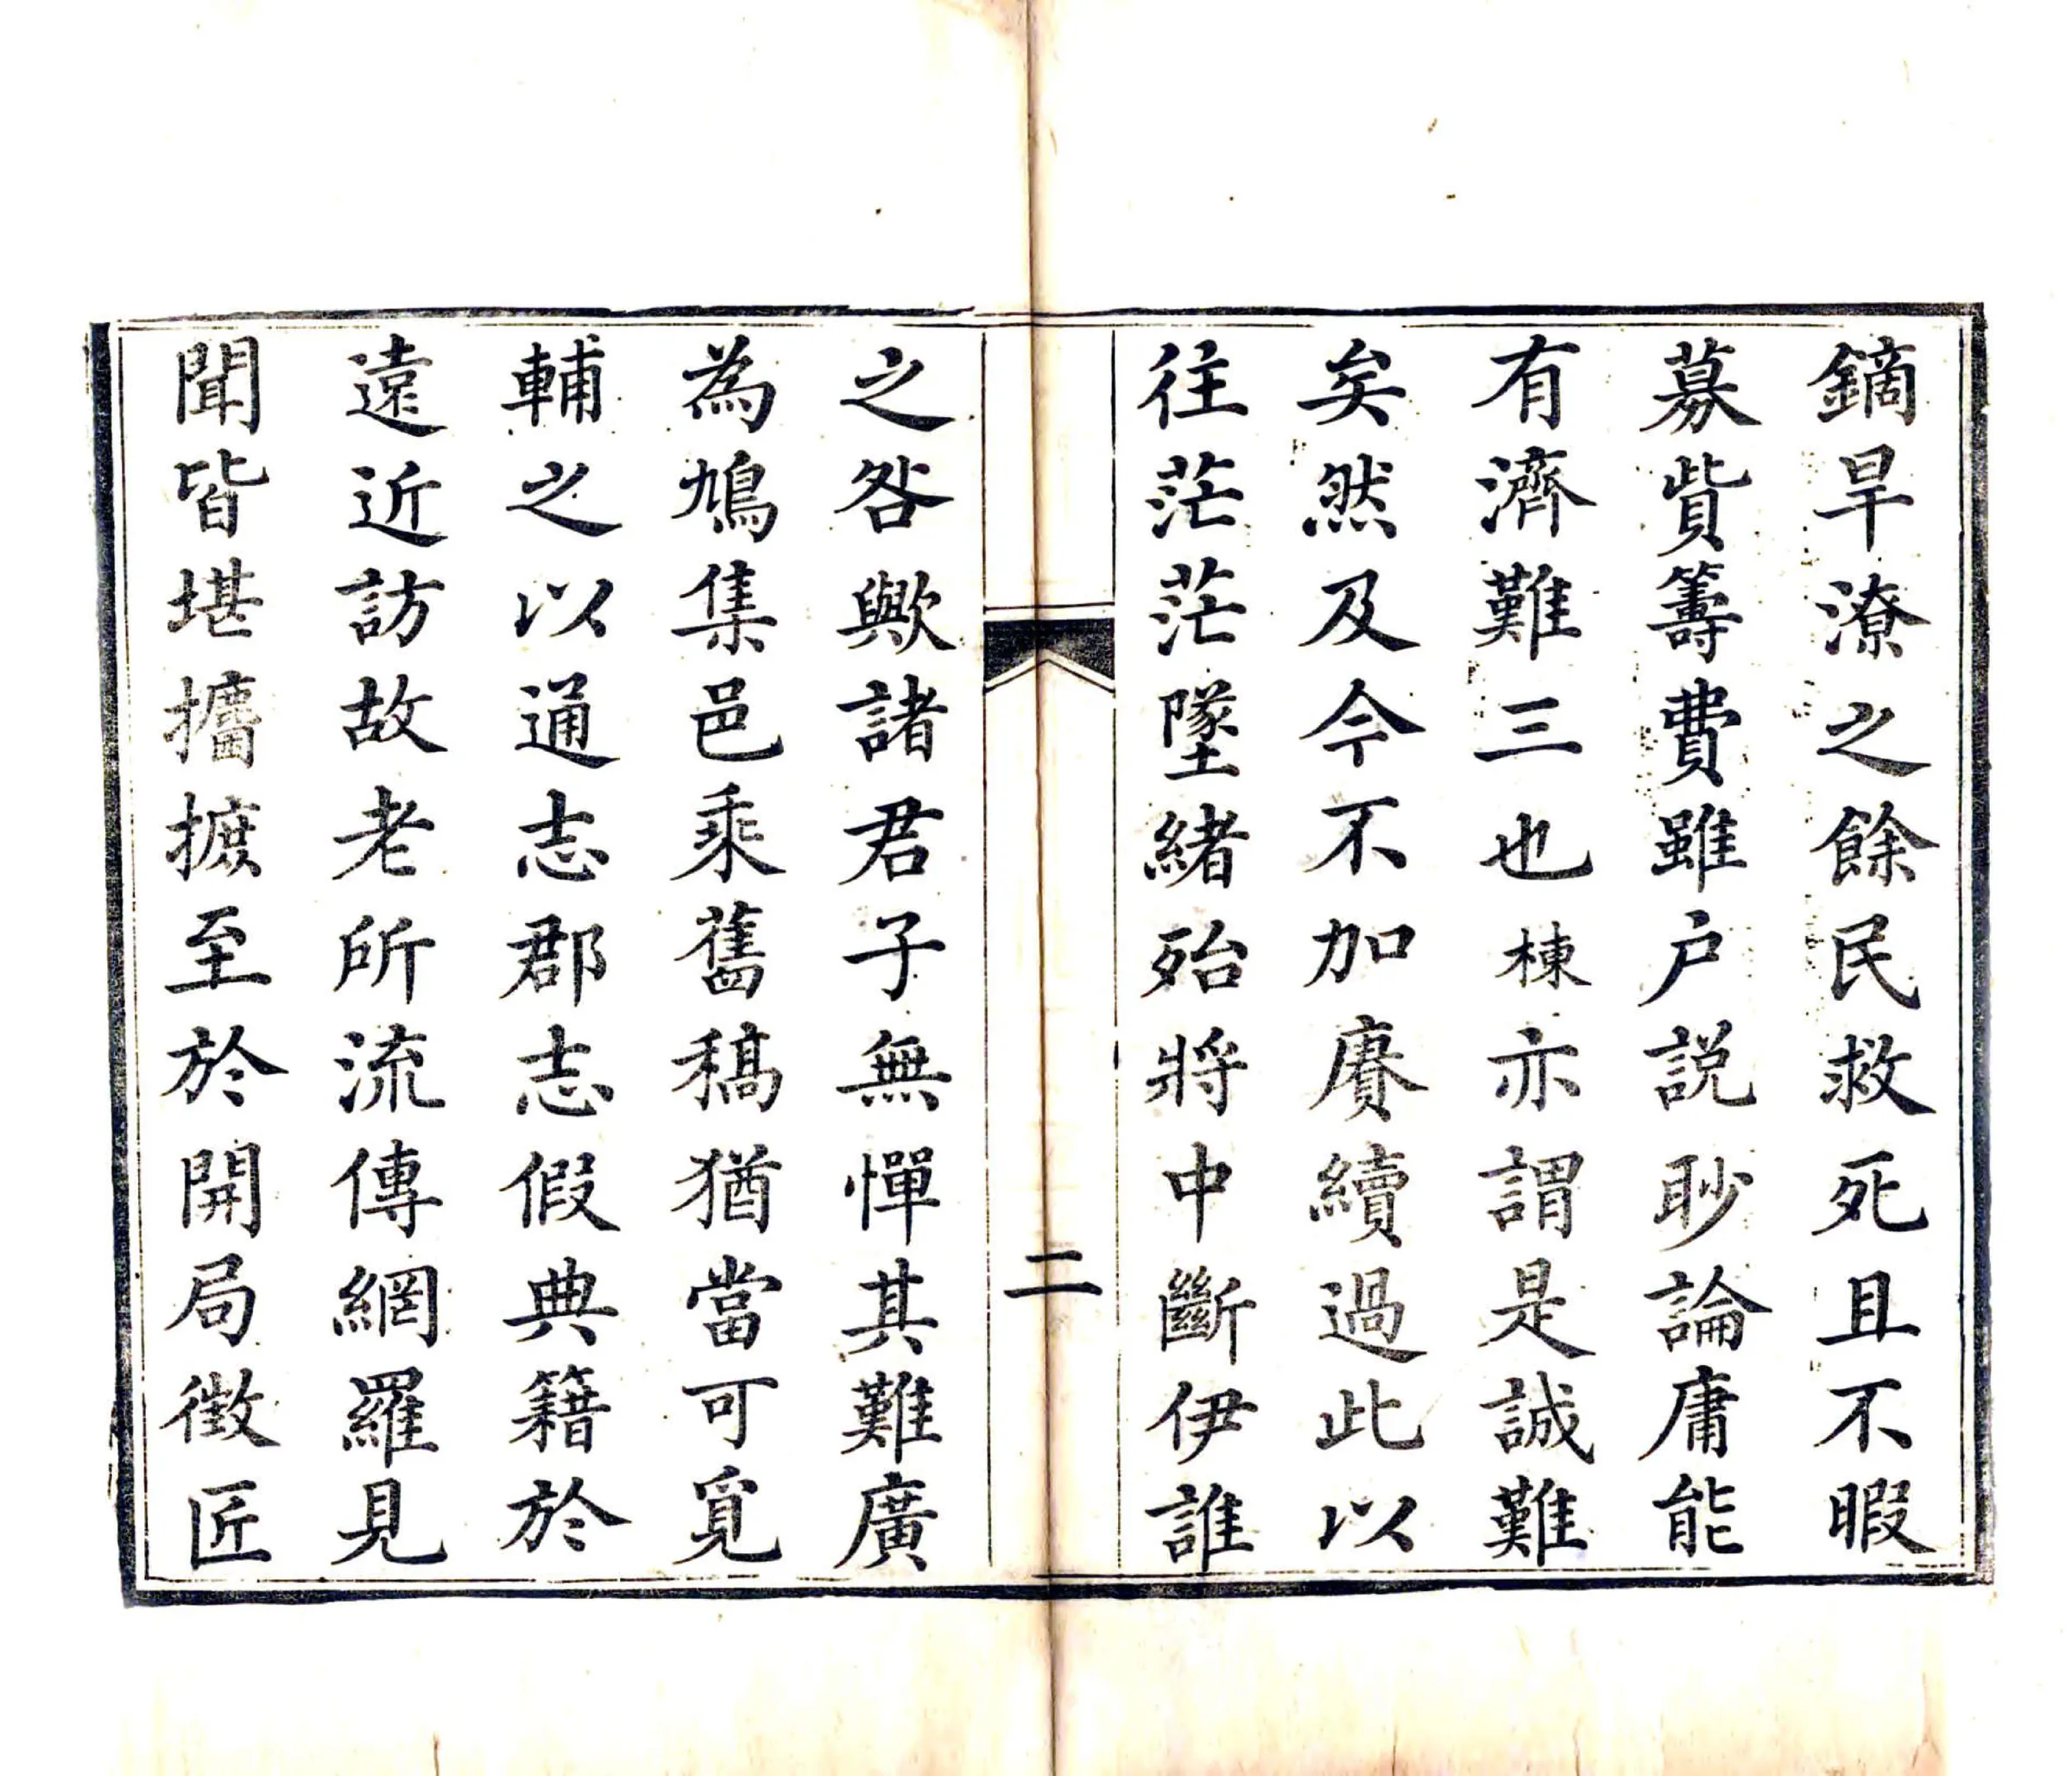 鏑旱潦之餘民救死且不暇
募貲籌費雖户説眇論庸能
有濟難三也棟亦謂是誠難
矣然及今不加賡續過此以
往茫茫墜緒殆將中斷伊誰
二
之咎歟諸君子無憚其難廣
為鳩集邑乘舊稿猶當可覓
輔之以通志郡志假典籍於
遠近訪故老所流傳網羅見
聞皆堪攟摭至於開局徵匠